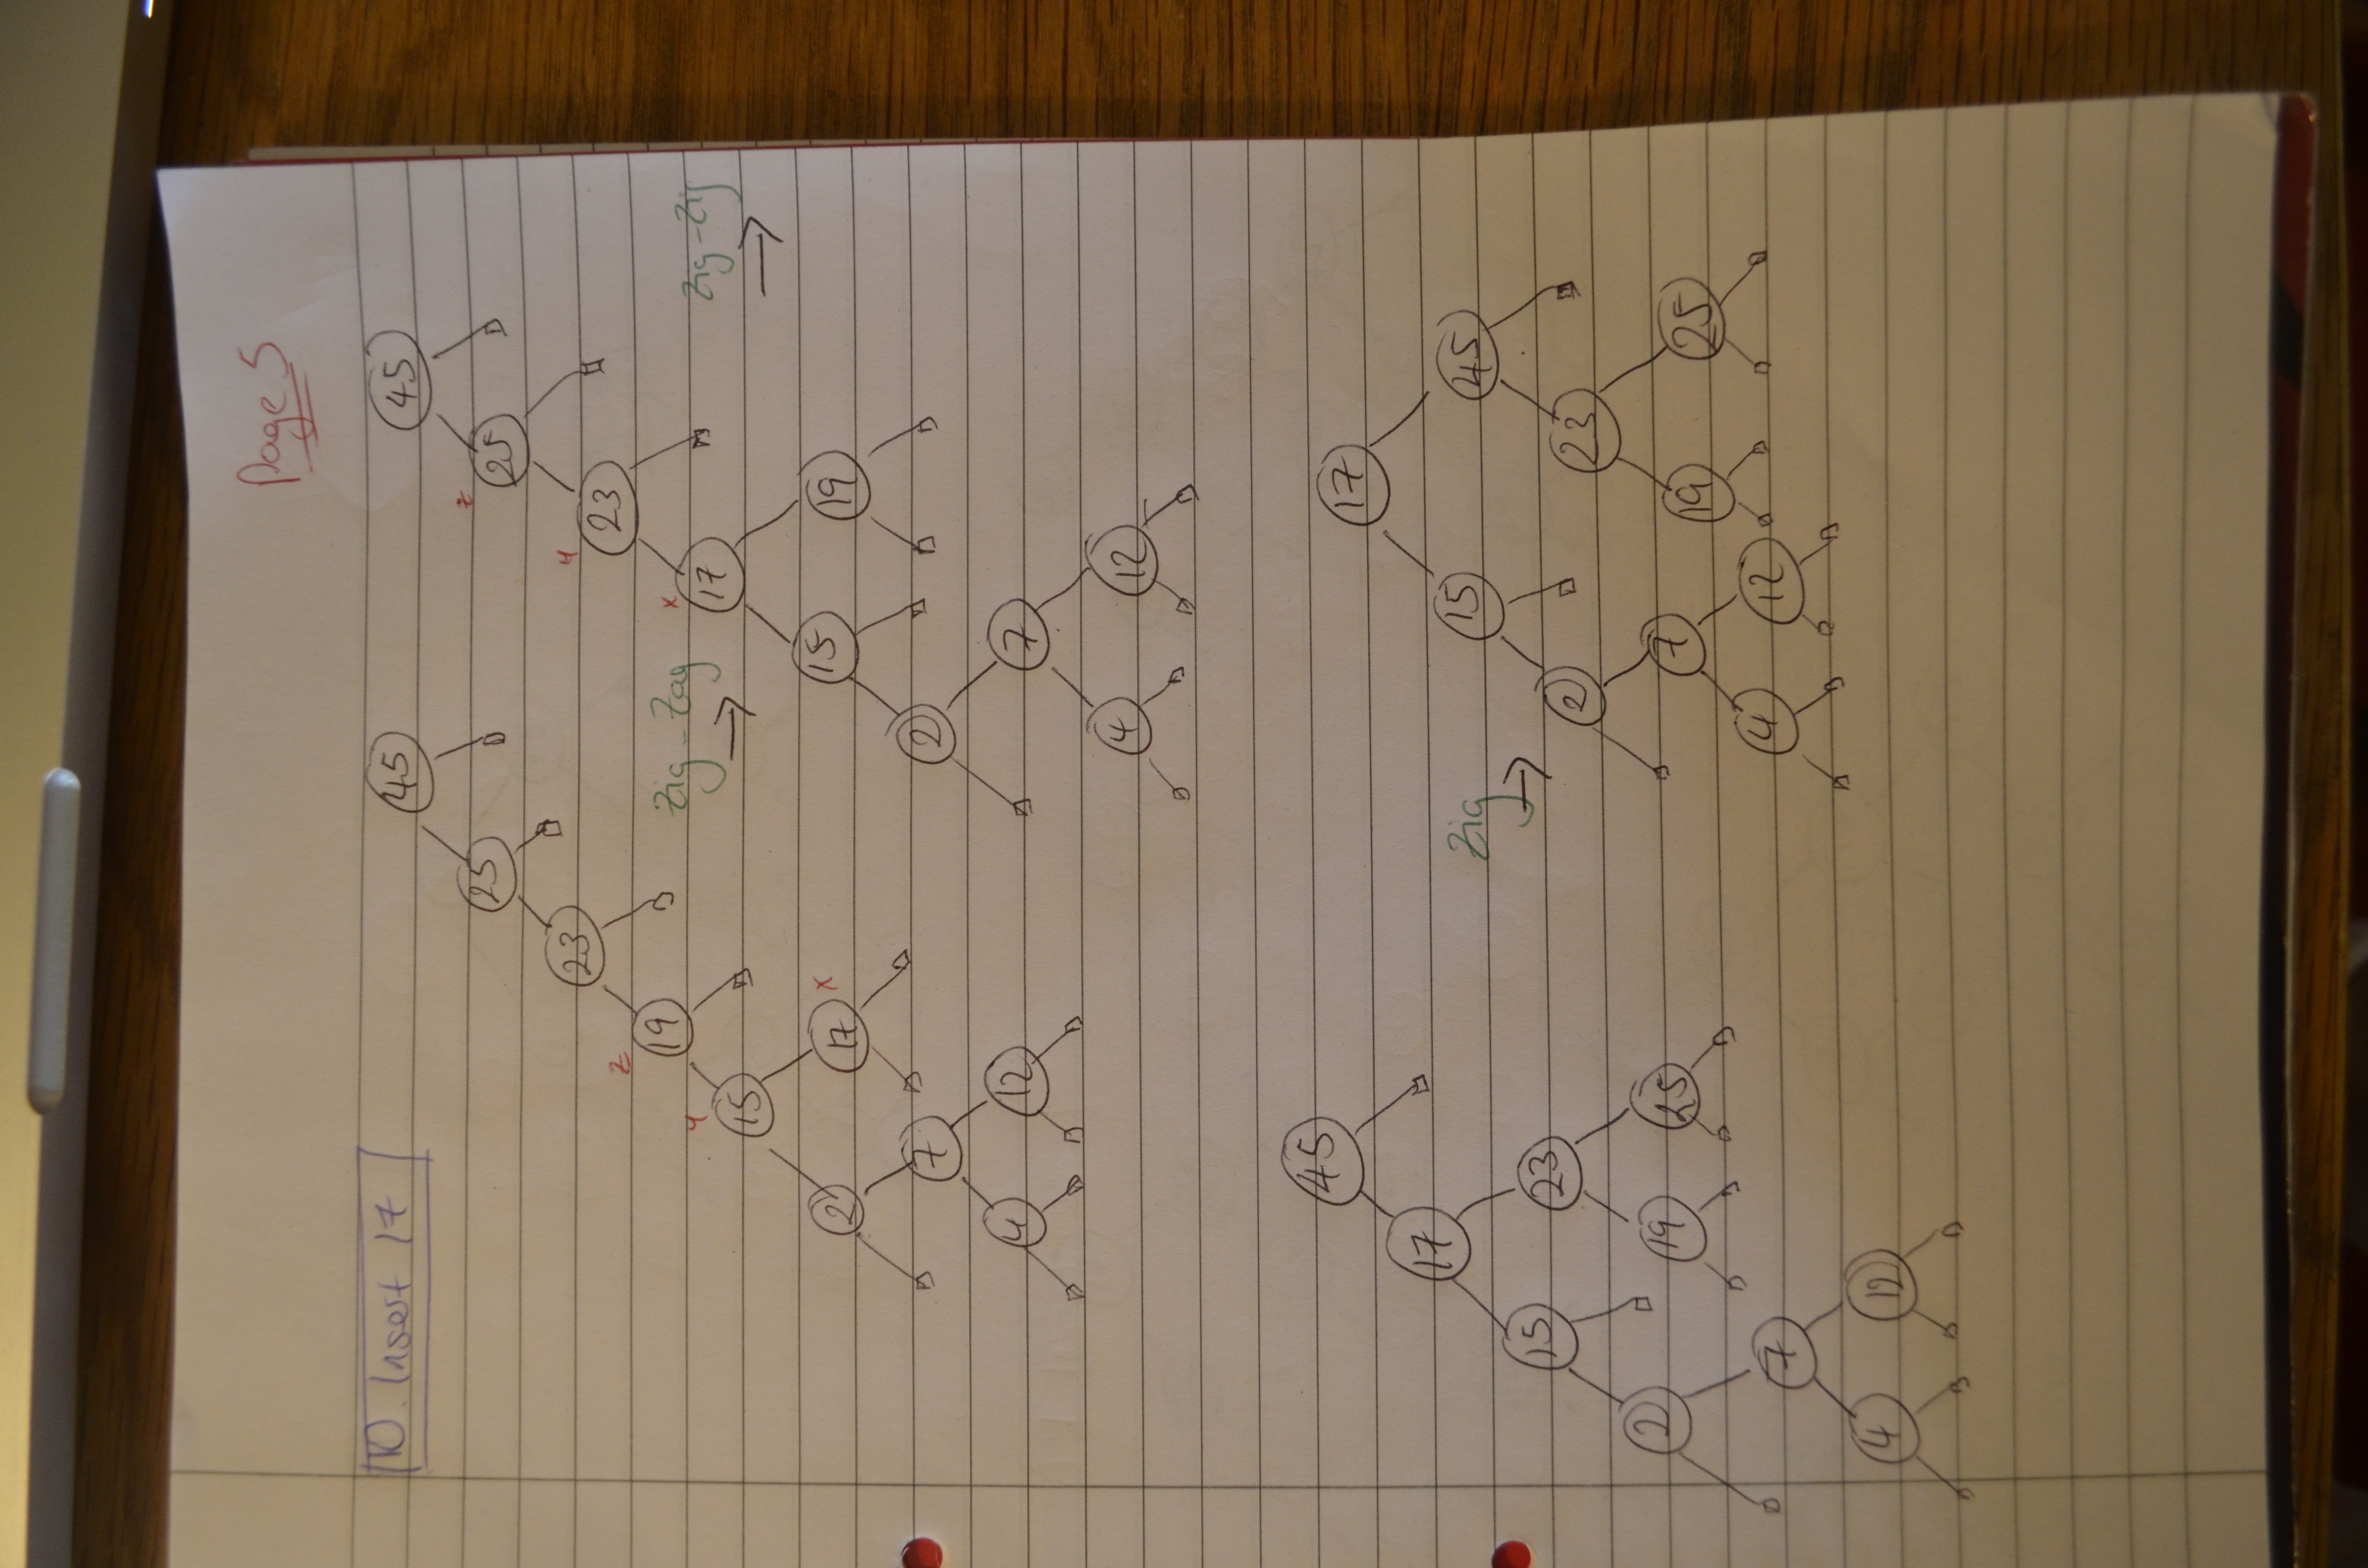 Page 5
10. Insert 17
45
25
23
z
19
y
15
2
17 x
7
4 12
Zig-Zag
45
z
25
y
23
x
17
15 19
2
7
4 12
Zig-Zig
45
17
15 23
2 19 25
7
4 12
Zig
17
15 45
2 23
7 19 25
4 12